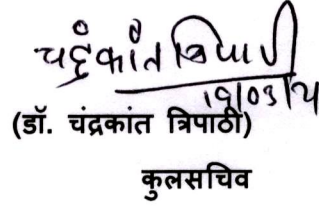 चंद्रकांत त्रिपाठी
(डॉ. चंद्रकांत त्रिपाठी)
कुलसचिव